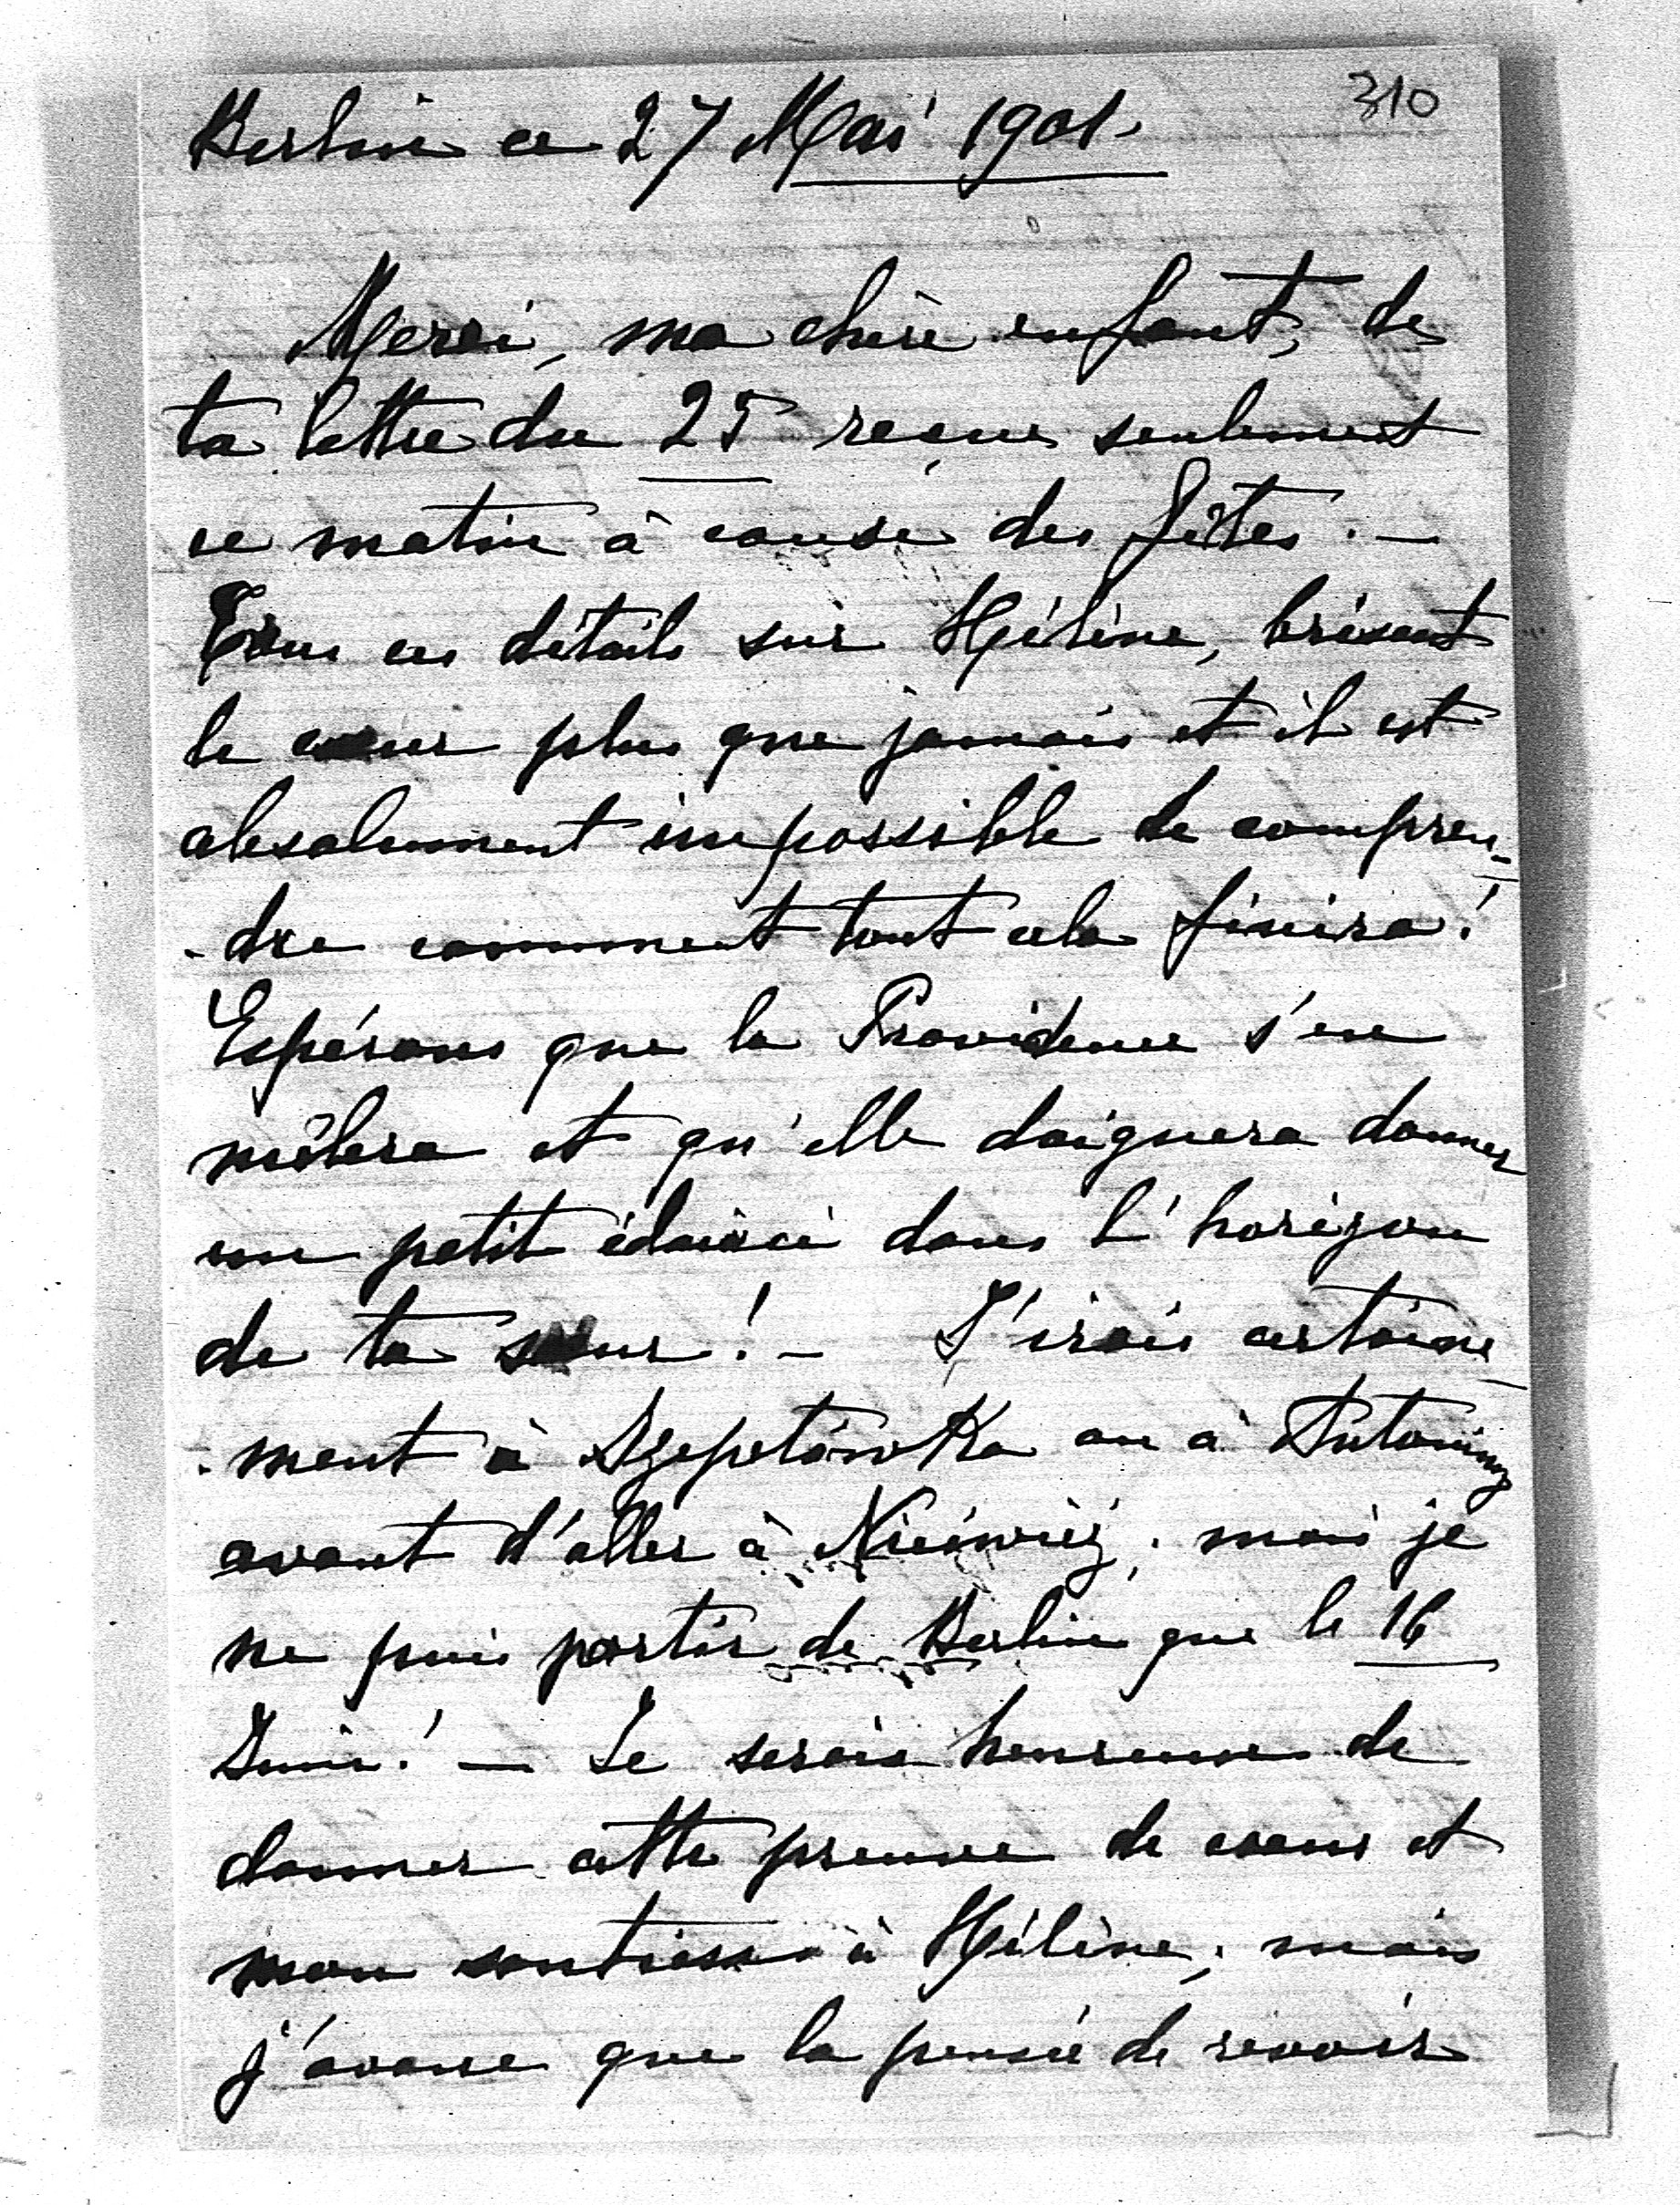 310
Berlin ce 27 Mai 1901.
Merci, ma chère enfant, de
ta lettre du 25 reçue seulement
ce matin à cause des fêtes. —
Tous ces détails sur Hélène, brisent
le cœur plus que jamais et il est
absolument impossible de compren-
-dre comment tout cela finira!
Espérons que la Providence s'en
mêlera et qu'elle daignera donner
un petit éclairci dans l'horizon
de ta sœur! — J'irais certaine-
-ment à Szepetówka ou à Antoniny
avant d'aller à Nieśwież; mais je
ne puis partir de Berlin que le 16
Juin! — Je serais heureuse de
donner cette preuve de cœur et
mon à Hélène; mais
j'avoue que la pensée de revoir